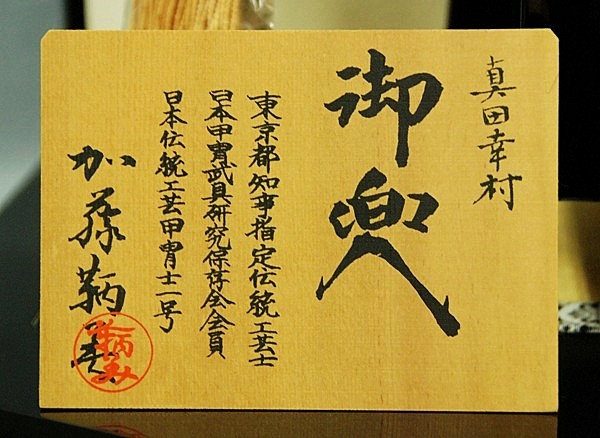 真田幸村
御兜
東京都知事指定伝統工芸士
日本甲冑武具研究保存会会員
日本伝統工芸甲冑士一号
加藤鞆美
鞆美